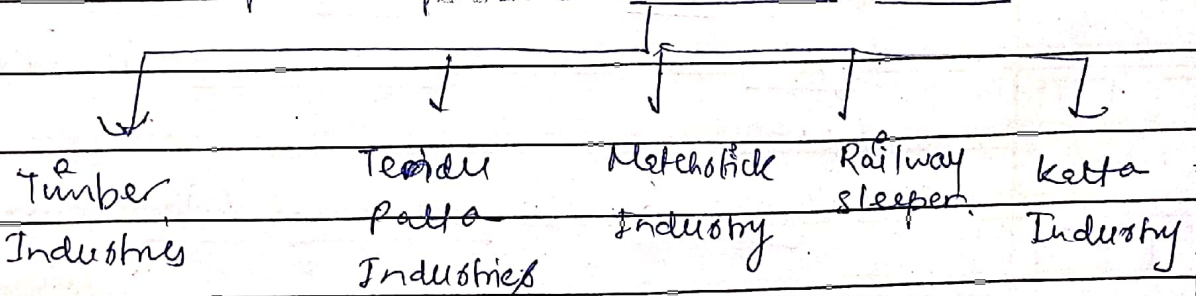 Timber
Industries
Tendu
Patta
Industries
Matchstick
Industry
Railway
sleeper.
Katta
Industry